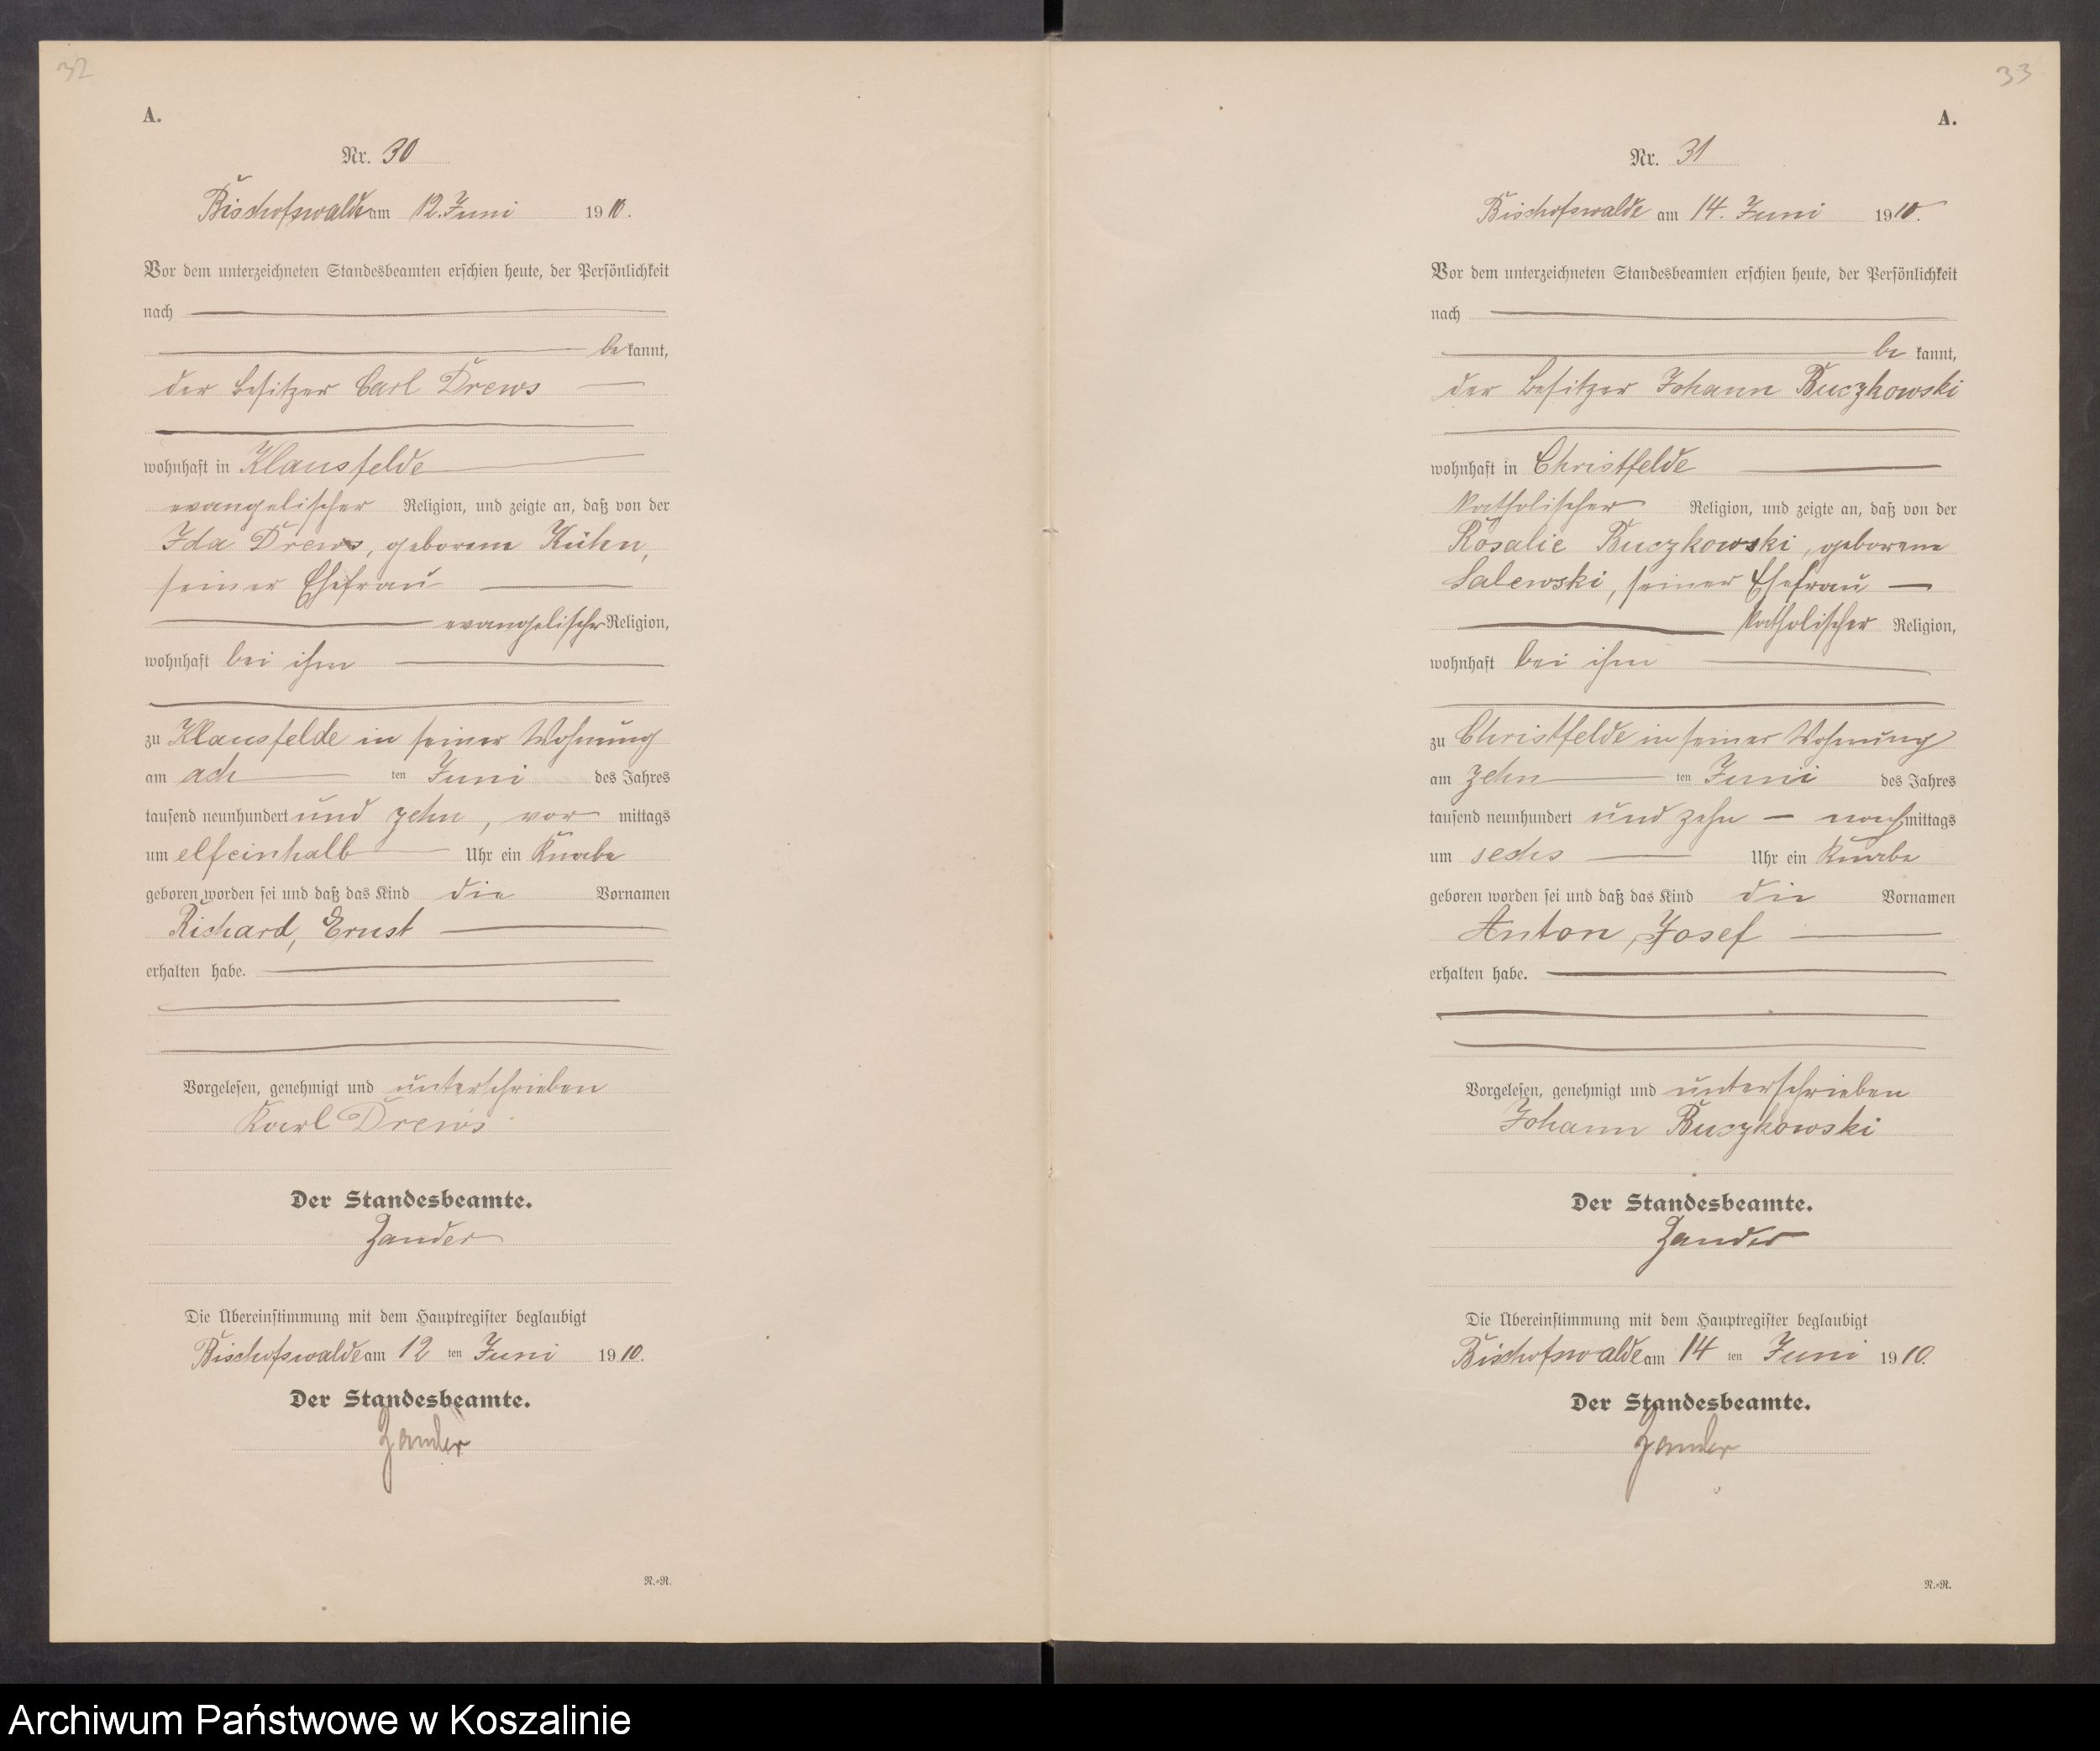 32
A.
Nr. 30
Bischofswalde am 12. Juni 1910.
Vor dem unterzeichneten Standesbeamten erschien heute, der Persönlichkeit
nach
be kannt,
der Besitzer Carl Drews
wohnhaft in Klausfelde
evangelischer Religion, und zeigte an, daß von der
Ida Drews, geborene Kühn,
seiner Ehefrau
evangelischer Religion,
wohnhaft bei ihm
zu Klausfelde in seiner Wohnung
am ach ten Juni des Jahres
tausend neunhundert und zehn, vor mittags
um elfeinhalb Uhr ein Knabe
geboren worden sei und daß das Kind die Vornamen
Richard, Ernst
erhalten habe.
Vorgelesen, genehmigt und unterschrieben
Karl Drews
Der Standesbeamte.
Zander
Die Übereinstimmung mit dem Hauptregister beglaubigt
Bischofswalde am 12 ten Juni 1910.
Der Standesbeamte.
Zander
N.=N.
33
A.
Nr. 31
Bischofswalde am 14. Juni 1910.
Vor dem unterzeichneten Standesbeamten erschien heute, der Persönlichkeit
nach
be kannt,
der Besitzer Johann Buczkowski
wohnhaft in Christfelde
katholischer Religion, und zeigte an, daß von der
Rosalie Buczkowski, geborene
Salewski, seiner Ehefrau
katholischer Religion,
wohnhaft bei ihm
zu Christfelde in seiner Wohnung
am zehn ten Juni des Jahres
tausend neunhundert und zehn nach mittags
um sechs Uhr ein Knabe
geboren worden sei und daß das Kind die Vornamen
Anton, Josef
erhalten habe.
Vorgelesen, genehmigt und unterschrieben
Johann Buczkowski
Der Standesbeamte.
Zander
Die Übereinstimmung mit dem Hauptregister beglaubigt
Bischofswalde am 14 ten Juni 1910.
Der Standesbeamte.
Zander
N.=N.
Archiwum Państwowe w Koszalinie